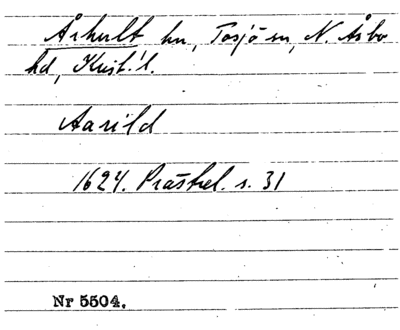 Århult hn, Tosjö sn, N. Åsbo
hd, Krist. l.
Aarild
1624. Prästrel. s. 31
Nr 5504.